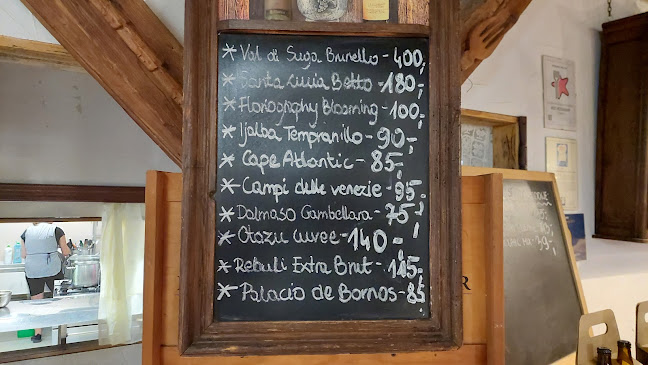 * Val di Suga Brunello - 400,-
* Santa Lucia Betto - 180,-
* Floriography Blooming - 100,-
* Ijalba Tempranillo - 90,-
* Cape Atlantic - 85,-
* Campi delle venezie - 95,-
* Dalmaso Gambellara - 75,-
* Otazu cuvee - 140,-
* Rebuli Extra Brut - 115,-
* Palacio de Bornos - 85
R